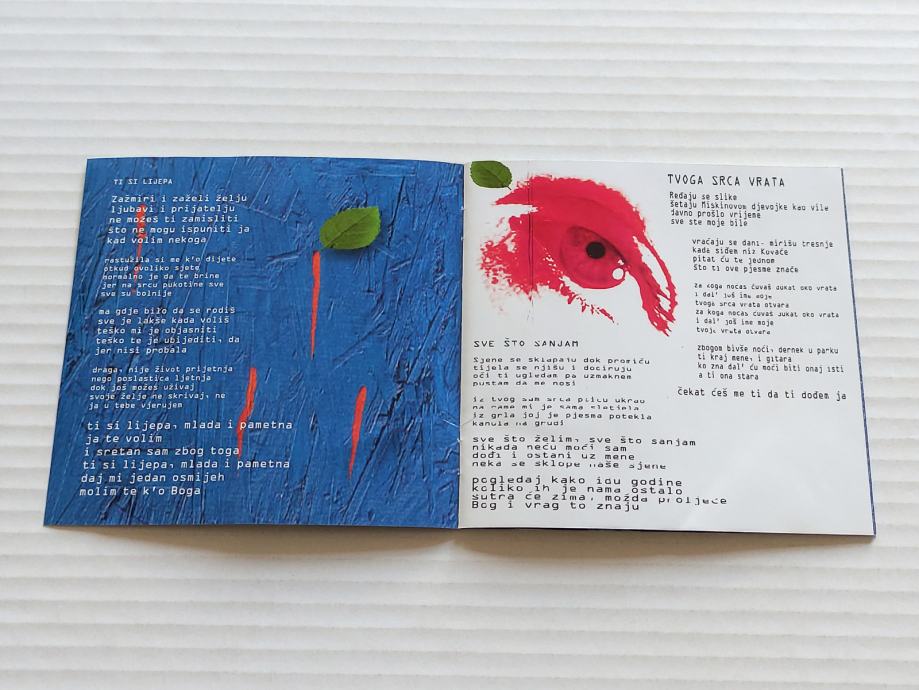 TI SI LIJEPA
Zažmiri i zaželi želju
ljubavi i prijatelju
ne možeš ti zamisliti
što ne mogu ispuniti ja
kad volim nekoga
rastužila si me k'o dijete
otkud ovoliko sjete
normalno je da te brine
jer na srcu pukotine sve
sve su bolnije
ma gdje bilo da se rodiš
sve je lakše kada voliš
teško mi je objasniti
teško te je ubijediti, da
jer nisi probala
draga, nije život prijetnja
nego poslastica ljetnja
dok još možeš uživaj
svoje želje ne skrivaj, ne
ja u tebe vjerujem
ti si lijepa, mlada i pametna
ja te volim
i sretan sam zbog toga
ti si lijepa, mlada i pametna
daj mi jedan osmijeh
molim te k'o Boga
SVE ŠTO SANJAM
Sjene se sklapaju dok prosiću
tijela se njišu i dociruju
oči ti ugledam pa uzmaknem
pustam da me nosi
iz tvog sam srca pticu ukrao
na rame mi je sama sletjela
iz grla joj je pjesma potekla
kanula na grudi
sve što želim, sve što sanjam
nikada neću moći sam
dođi i ostani uz mene
neka se sklope naše sjene
pogledaj kako idu godine
koliko ih je nama ostalo
sutra će zima, možda proljeće
Bog i vrag to znaju
TVOGA SRCA VRATA
Ređaju se slike
šetaju Miskinovom djevojke kao vile
davno prošlo vrijeme
sve ste moje bile
vraćaju se dani- mirišu tresnje
kada siđem niz Kovače
pitat ću te jednom
što ti ove pjesme znače
za koga nocas čuvaš dukat oko vrata
i dal' još ime moje
tvoga srca vrata otvara
za koga nocas čuvaš dukat oko vrata
i dal' još ime moje
tvoje vrata otvara
zbogom bivše noći, dernek u parku
ti kraj mene, i gitara
ko zna dal' ću moći biti onaj isti
a ti ona stara
čekat ćeš me ti da ti dođem ja